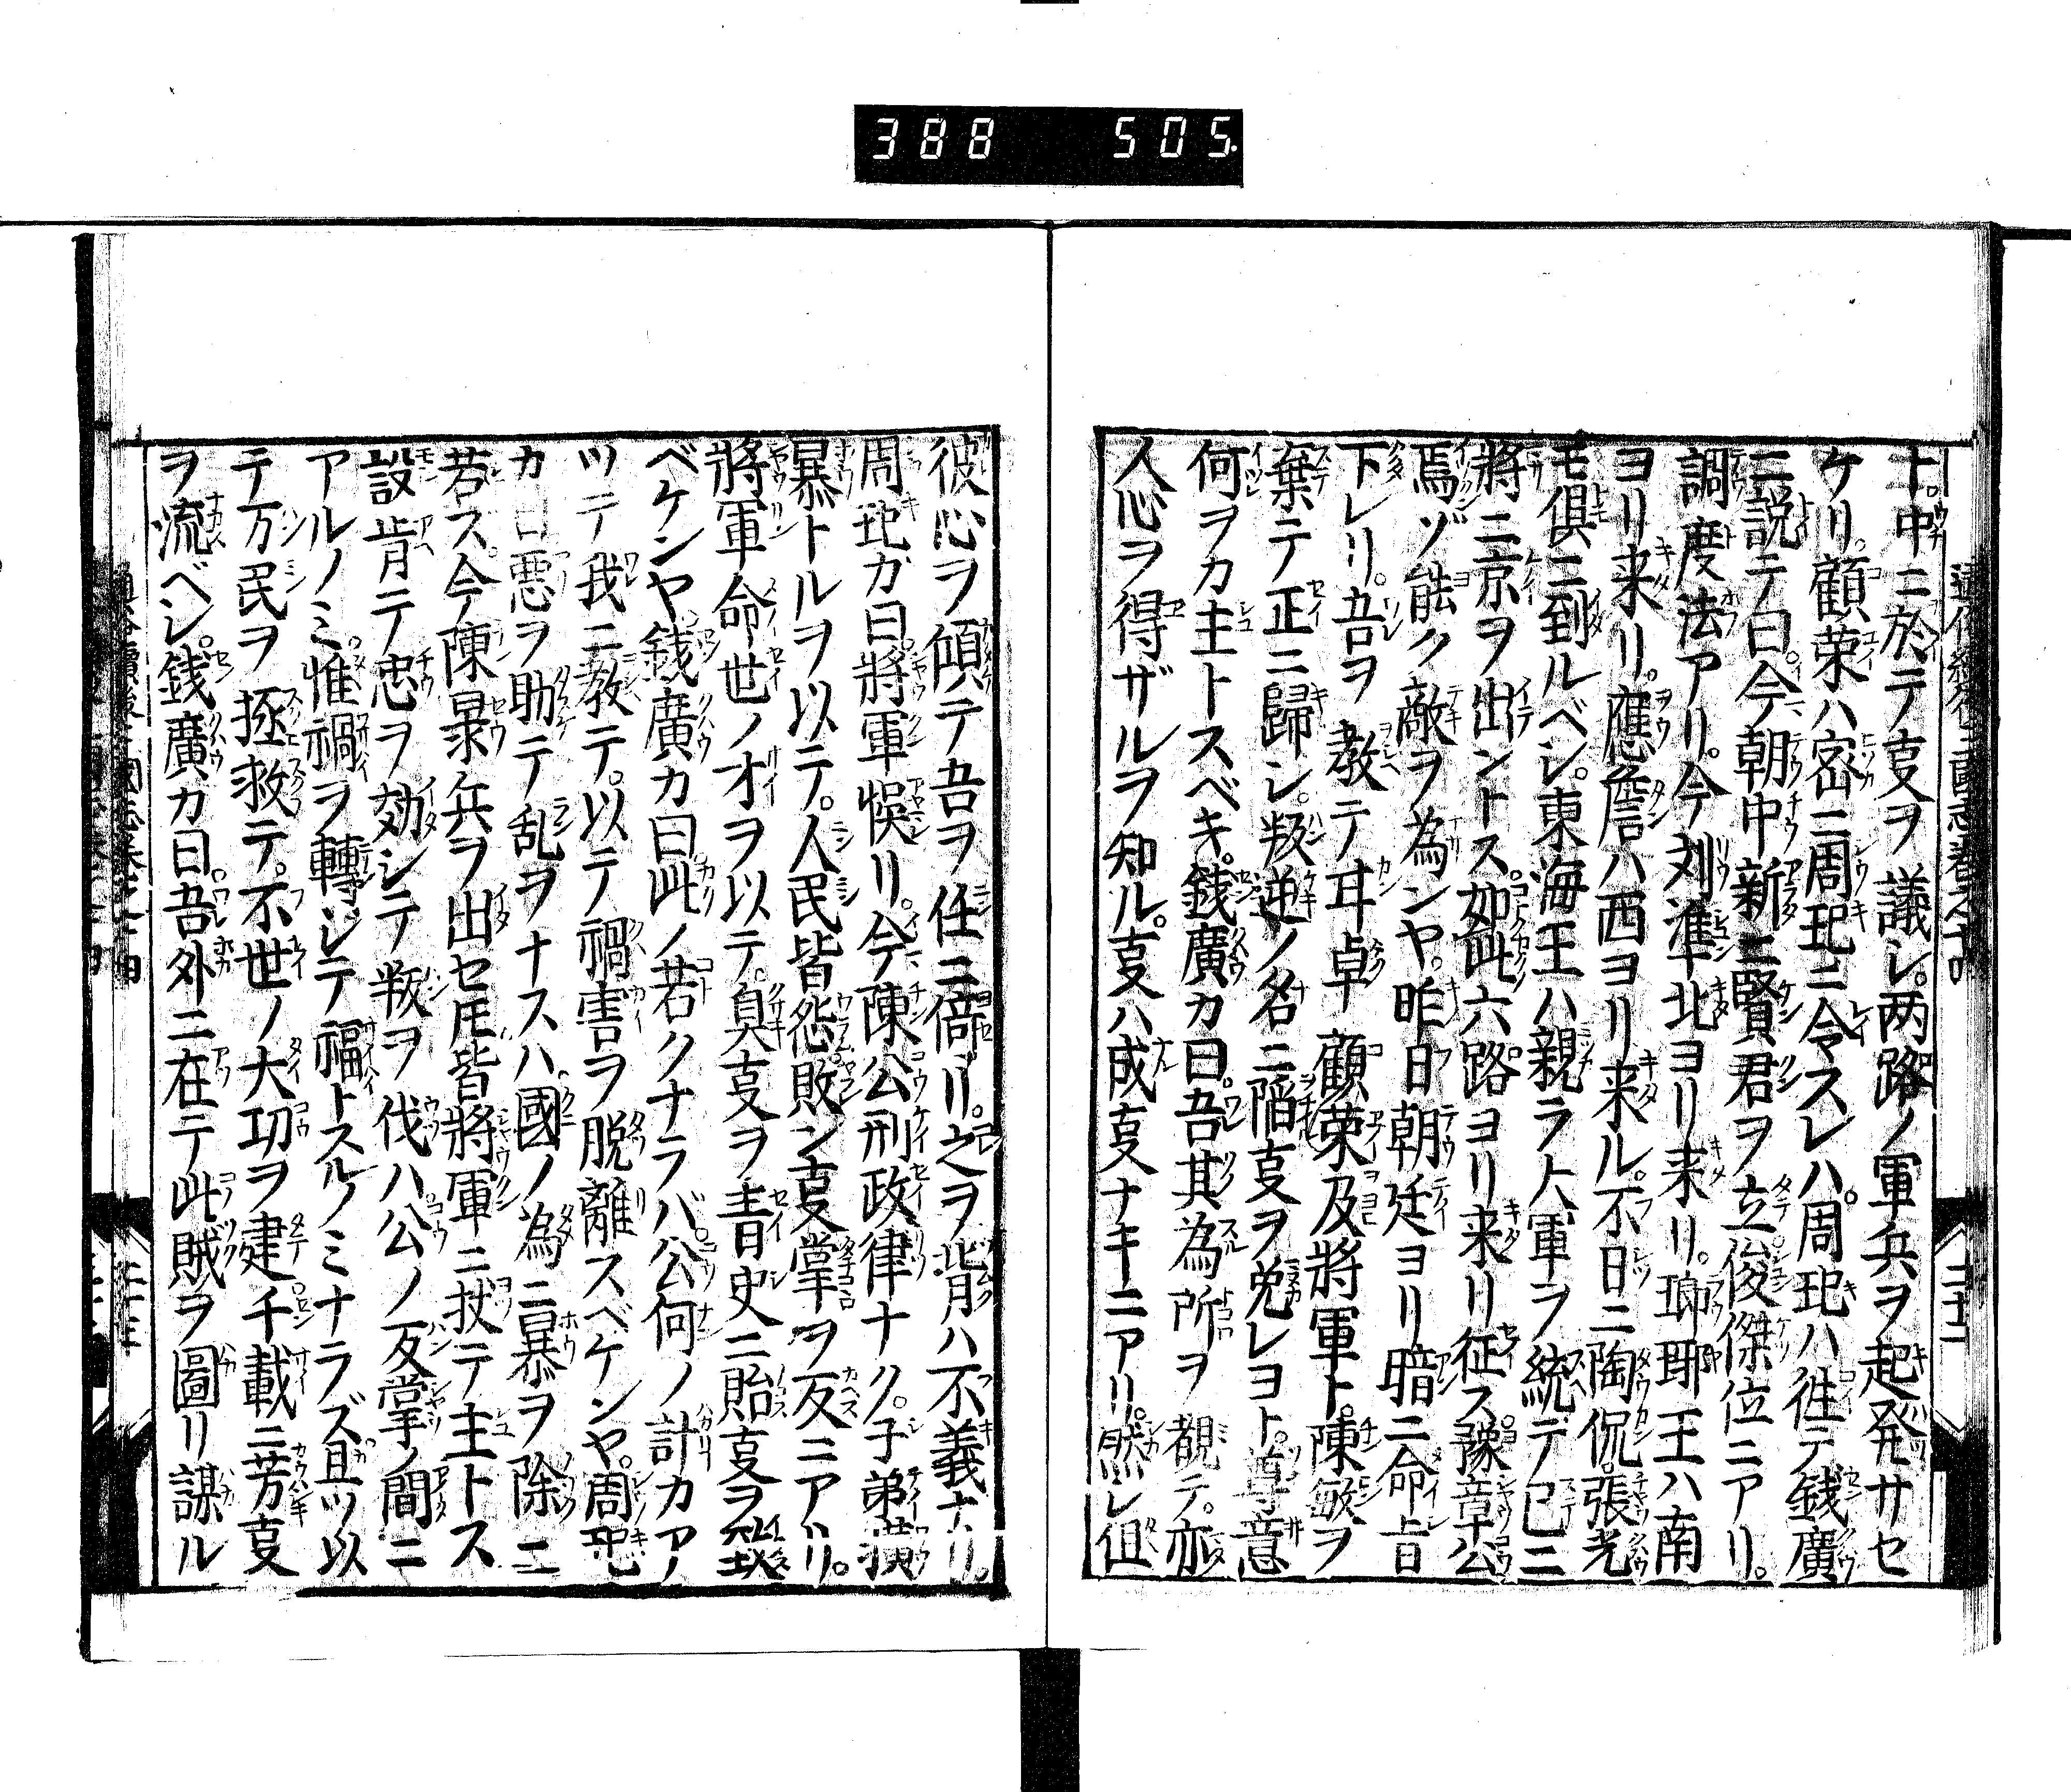 388 505.
ト。中ニ於テ叓ヲ議シ。两路ノ軍兵ヲ起発サセ
ケリ。顧榮ハ密ニ周玘ニ令スレハ。周玘ハ徃テ銭廣
ニ説テ曰。今朝中新ニ賢君ヲ立。俊傑位ニアリ。
調度法アリ。今刘準北ヨリ来リ。瑯琊王ハ南
ヨリ来リ。應詹ハ西ヨリ来ル。不日ニ陶侃。張光
モ俱ニ到ルベシ。東海王ハ親ラ大軍ヲ統テ已ニ
將ニ京ヲ出ントス。如此六路ヨリ来リ征ス。豫章公
焉ゾ能ク敵ヲ為ンヤ。昨日朝廷ヨリ暗ニ命㫖
下レリ。吾ヲ教テ甘卓顧榮及將軍ト。陳敏ヲ
棄テ正ニ歸シ。叛逆ノ名ニ陥叓ヲ免レヨト。尊意
何ヲカ主トスベキ。銭廣カ曰。吾其為所ヲ覩テ。亦
人心ヲ得ザルヲ知ル。叓ハ成叓ナキニアリ。然レ伹
彼心ヲ傾テ吾ヲ任ニ倚リ。之ヲ背ハ不義ナリ。
周玘カ曰。將軍悞リ。今陳公刑政律ナク。子弟横
暴トルヲ以テ。人民皆怨。敗ン叓掌ヲ反ニアリ。
將軍命世ノオヲ以テ。臭叓ヲ青史ニ貽叓ヲ
ベケンヤ。銭廣カ曰。此ノ若クナラバ。公何ノ計カアノ
ツテ我ニ教テ。以テ禍害ヲ脱離スベケンヤ。周玘
カ曰悪ヲ助テ乱ヲナスハ。國ノ為ニ暴ヲ除ニ
若ス。今陳㬥兵ヲ出セ𪜈。皆將軍ニ扙テ主トス
設肯テ忠ヲ効シテ叛ヲ伐ハ。公ノ反掌ノ間ニ
アルノミ。惟禍ヲ轉シテ福トスルノミナラズ。且ツ以
テ万民ヲ拯救テ。不世ノ大功ヲ建。千載ニ芳叓
ヲ流ベシ。銭廣カ曰。吾外ニ在テ此賊ヲ圖リ謀ル